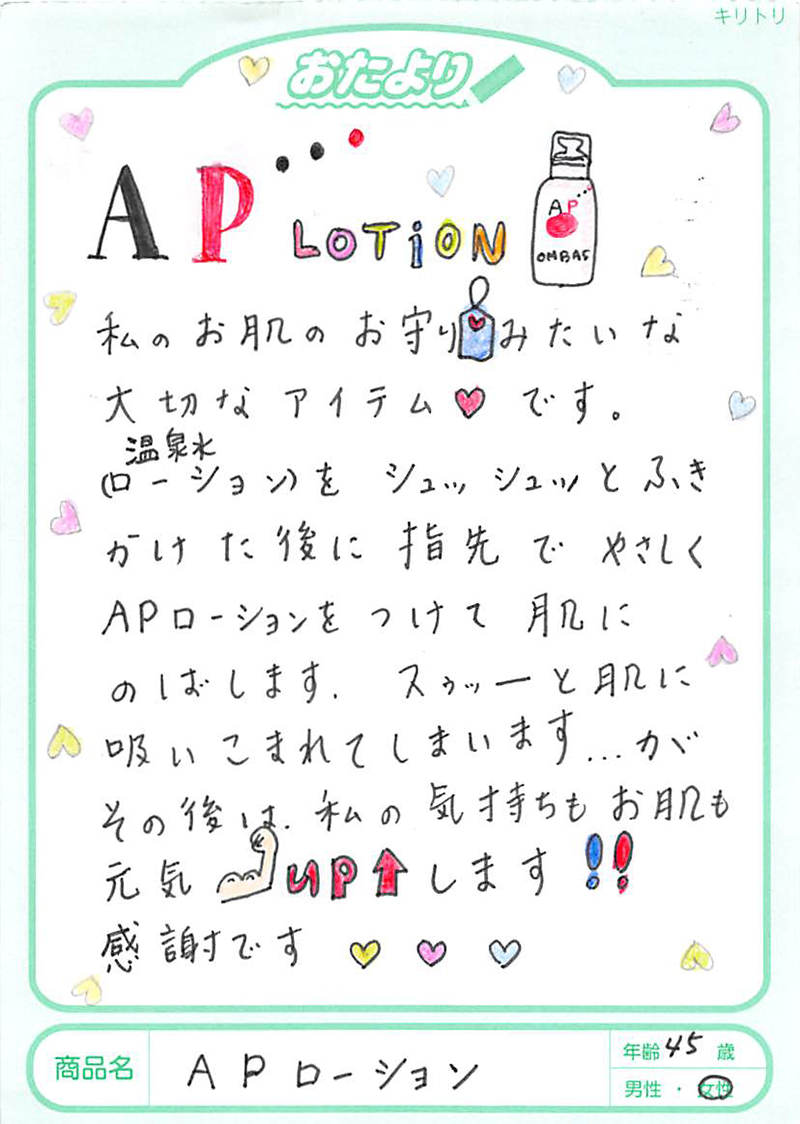 キリトリ
おたより
AP LOTION
AP
OMBAS
私のお肌のお守りみたいな
大切なアイテムです。
温泉水
(ローション)を シュッ シュッと ふき
かけた後に 指先で やさしく
APローションを つけて 肌に
のばします. スゥッーと肌に
吸いこまれてしまいます...が
その後は. 私の気持ちもお肌も
元気UPします!!
感謝です
商品名 APローション
年齢45歳
男性・女性